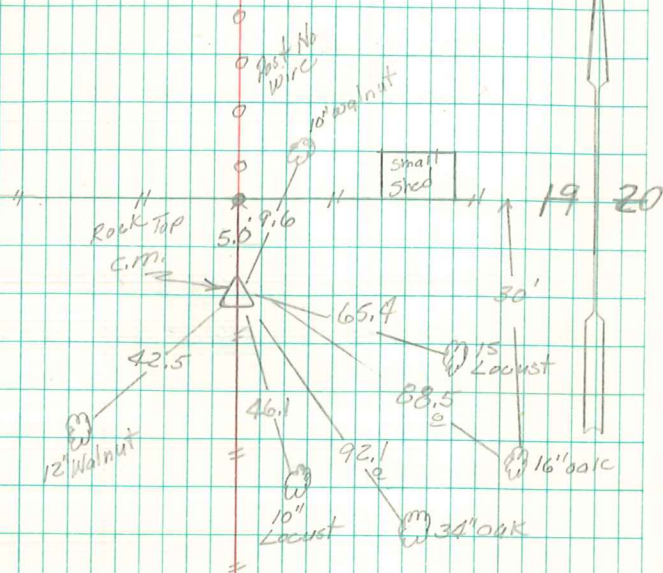 Post No
wire
10" walnut
small
Shed
19 20
Rock Top
C.M.
5.0'
9.6
30'
65.4
15
Locust
42.5
88.5
46.1
92.1
12" Walnut
16" oak
10"
Locust
34" oak